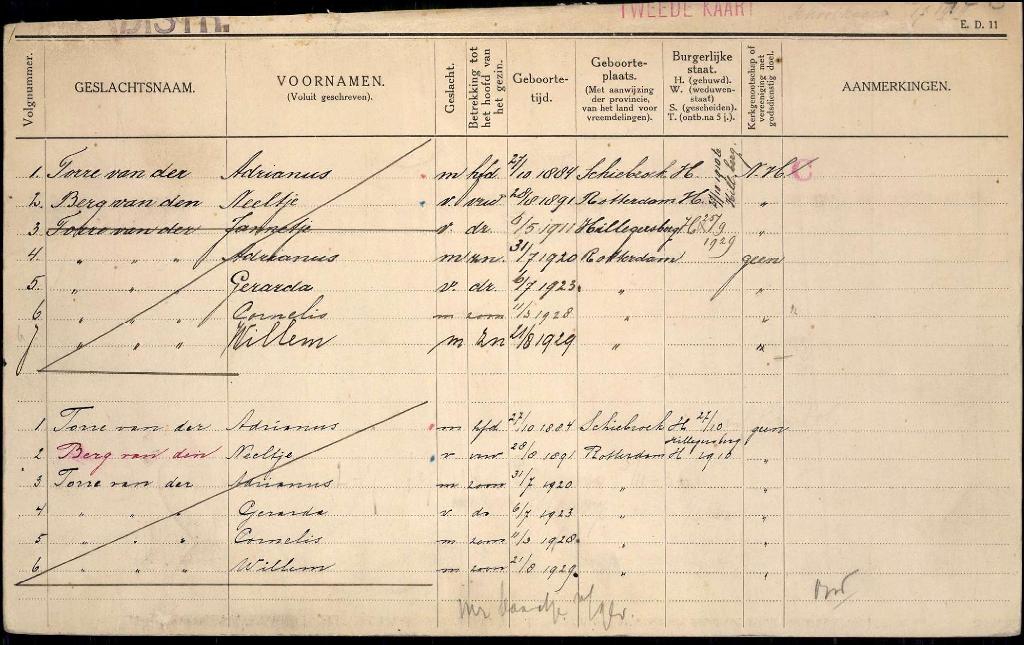 TWEEDE KAART
E. D. 11
Volgnummer. GESLACHTSNAAM. VOORNAMEN. (Voluit geschreven). Geslacht. Betrekking tot het hoofd van het gezin. Geboorte-tijd. Geboorte-plaats. (Met aanwijzing der provincie, van het land voor vreemdelingen). Burgerlijke staat. H. (gehuwd). W. (weduwen-staat) S. (gescheiden). T. (ontb.na 5 j.). Kerkgenootschap of vereeniging met godsdienstig doel. AANMERKINGEN.
1. Torre van der Adrianus m hfd. 27/10 1884 Schiebroek H. 27/10 1910 te Hilleg.berg. N.H. C
2. Berg van den Neeltje v. vrw 28/8 1891 Rotterdam H. "
3 Torre van der Jannetje v. dr. 5/5 1911 Hillegersberg H 25/9 1929 "
4. " " " Adrianus m zn. 31/7 1920 Rotterdam geen
5. " " " Gerarda v. dr. 6/7 1923. " "
6 " " " Cornelis m zoon 11/3 1928 " "
7 " " " Willem m zn 21/8 1929 " "
1. Torre van der Adrianus m hfd. 27/10 1884 Schiebroek H 27/10 geen
Hillegersberg
2 Berg van den Neeltje v vrw 28/8 1891 Rotterdam H 1910 "
3 Torre van der Adrianus m zoon 31/7 1920 " "
4 " " " Gerarda v dr 6/7 1923 " "
5 " " " Cornelis m zoon 11/3 1928 " "
6 " " " Willem m zoon 21/8 1929 " "